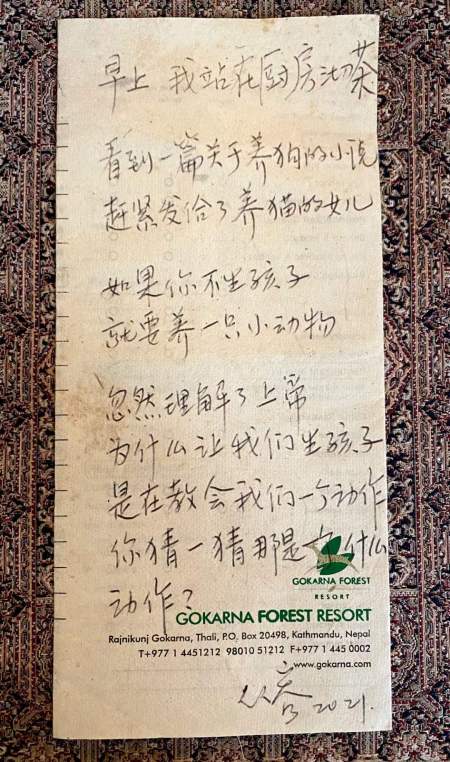 早上 我站在厨房沏茶
看到一篇关于养狗的小说
赶紧发给了养猫的女儿
如果你不生孩子
就要养一只小动物
忽然理解了上帝
为什么让我们生孩子
是在教会我们一个动作
你猜一猜那是个什么
动作?
GOKARNA FOREST
RESORT
GOKARNA FOREST RESORT
Rajnikunj Gokarna, Thali, P.O. Box 20498, Kathmandu, Nepal
T+977 1 4451212 98010 51212 F+977 1 445 0002
www.gokarna.com
2021.